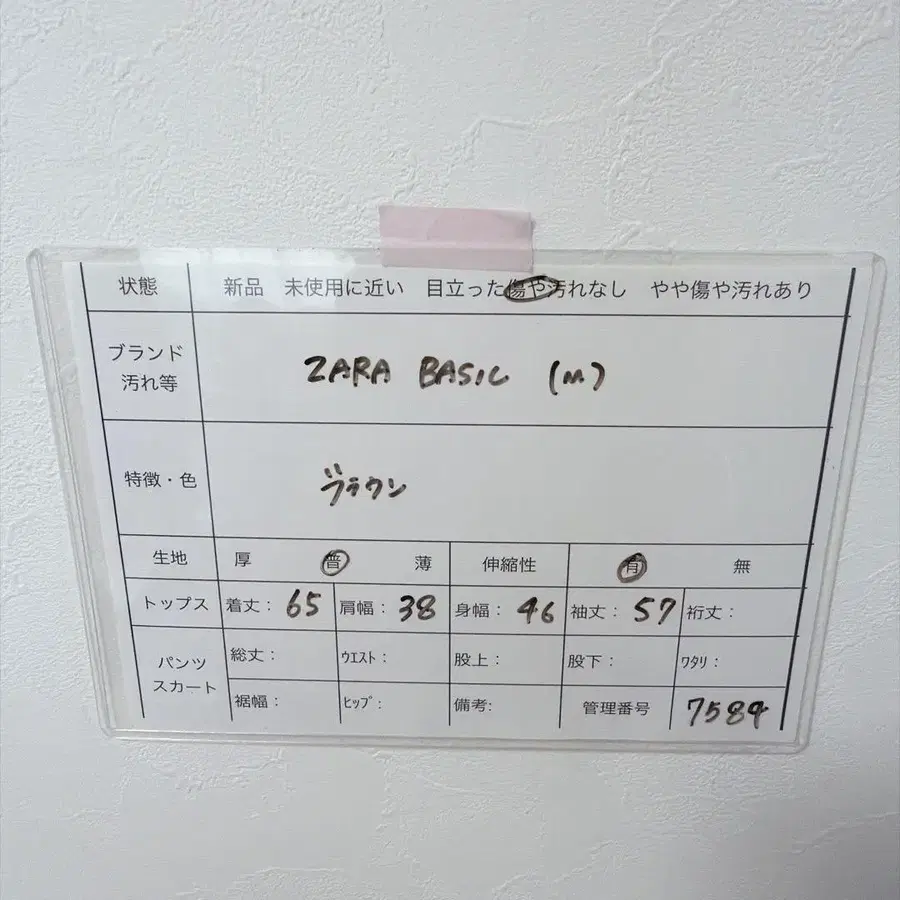 状態 新品 未使用に近い 目立った傷や汚れなし やや傷や汚れあり
ブランド
汚れ等
ZARA BASIC (M)
特徴・色 ブラウン
生地 厚 普 薄 伸縮性 有 無
トップス 着丈: 65 肩幅: 38 身幅: 46 袖丈: 57 裄丈:
パンツ
スカート
総丈: ウエスト: 股上: 股下: ワタリ:
裾幅: ヒップ: 備考: 管理番号 7584